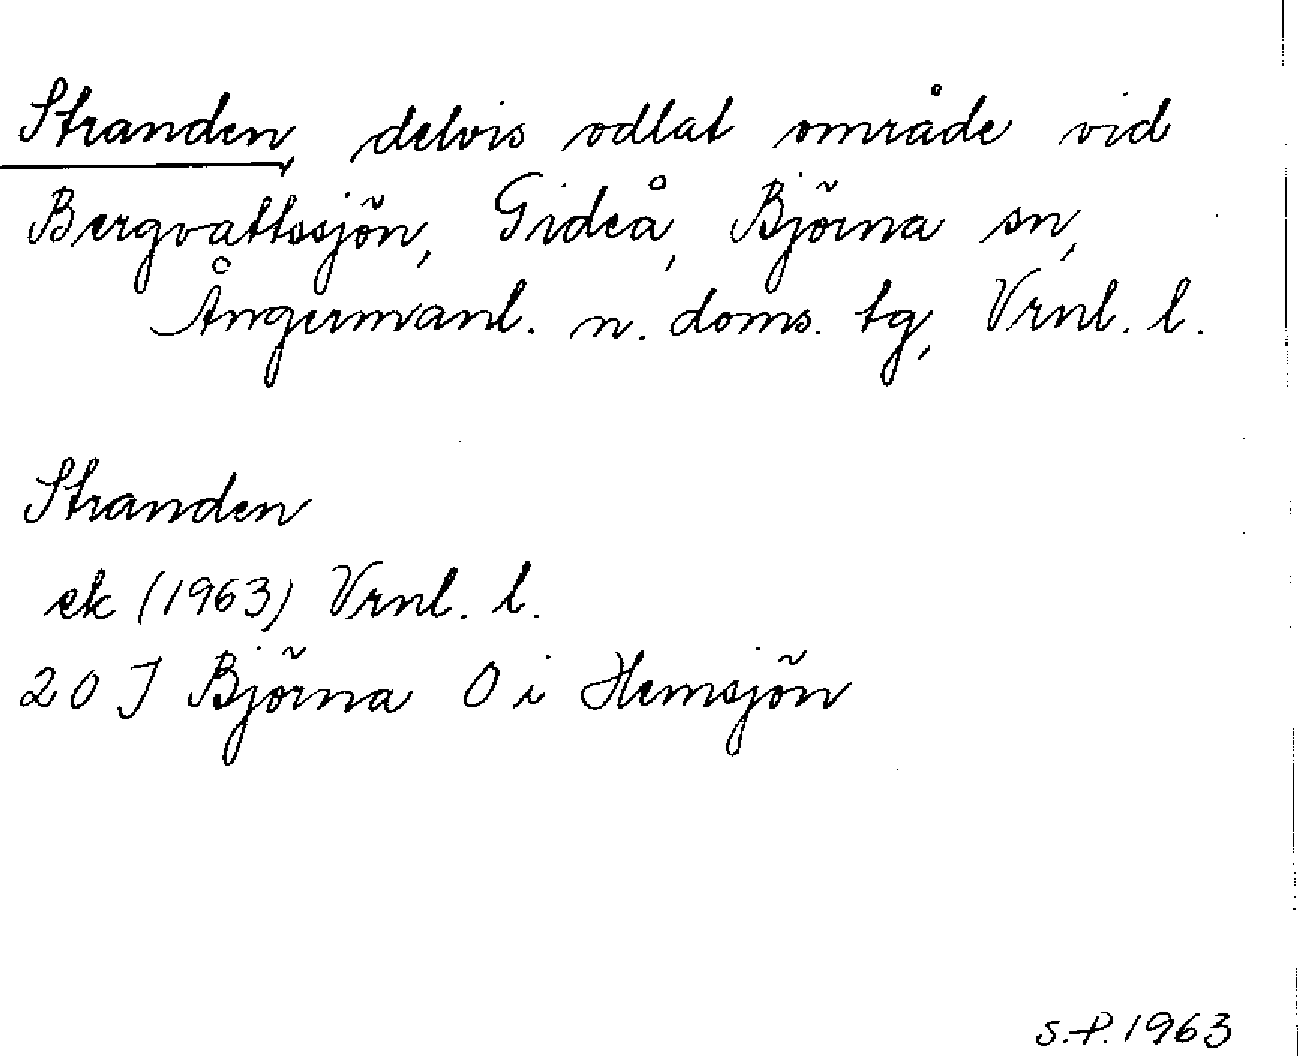 Stranden, delvis odlat område vid
Bergvattssjön, Gideå, Björna sn,
Ångermanl. n. doms. tg, Vrnl. l.
Stranden
ek (1963) Vrnl. l.
20 J Björna O i Hemsjön
S.P. 1963